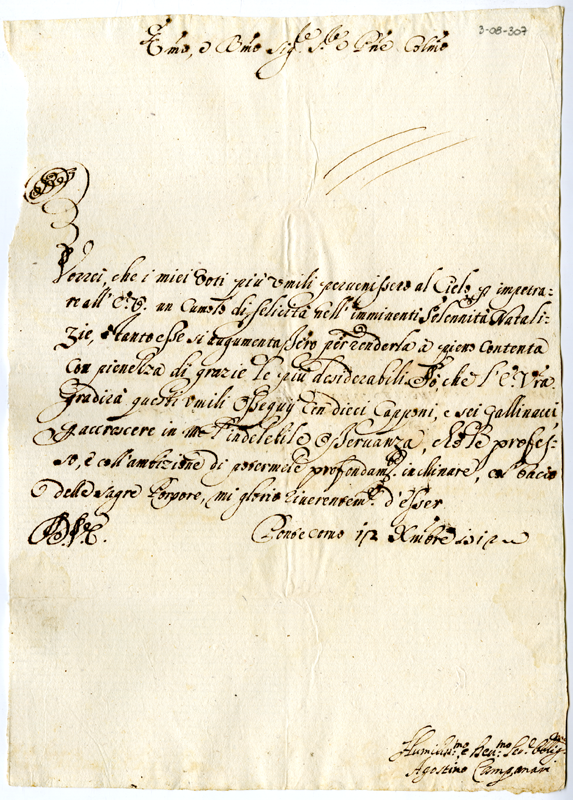 3-08-307
Em̃o, e Rm̃o Sig.r S.re e Pñe Colm̃o
Vorrei, che i miei voti più vmili peruenissero al Cielo p impetra-
re all' E.V. un Cumolo di felicità nell' imminenti Solennità Natali-
zie, e tanto esse si augumentassero per renderla à pieno contenta
con pienezza di grazie le più desiderabili. Sò che l'E. Vr̃a
gradirà questi vmili Ossequij con dieci Capponi, e sei gallinacci,
p accrescere in me l'indelebile osseruanza, che le profes-
so, e coll'ambizione di potermele profondam.te inchinare, col bacio
delle sagre Porpore, mi glorio riuerentem.te d'esser
D.V.E.
Pontecorno 12 Xmbre 1712
Humiliss.mo e Deu.mo Ser.e oblig.mo
Agostino Campanari